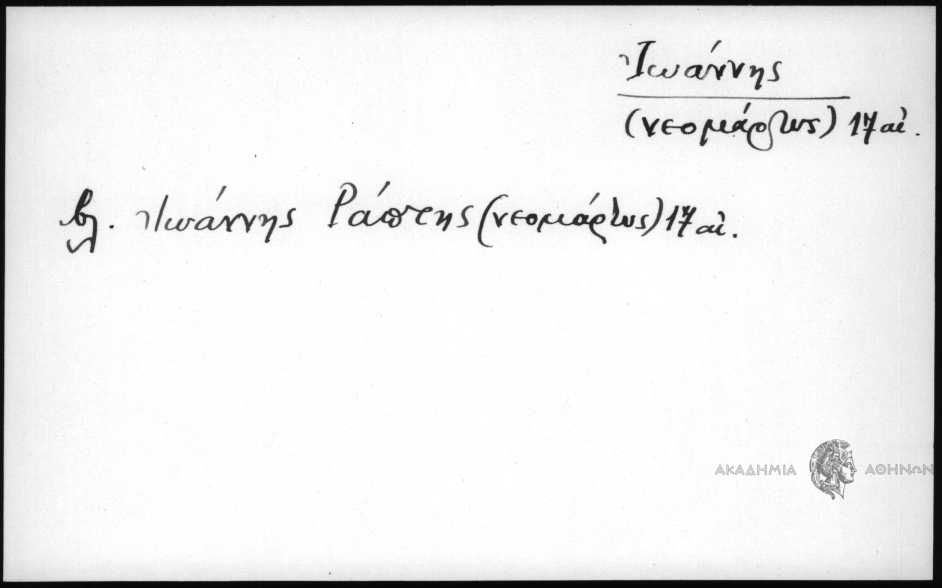 Ἰωάννης
(νεομάρτυς) 17 αἰ.
βλ. Ἰωάννης Ράπτης (νεομάρτυς) 17 αἰ.
ΑΚΑΔΗΜΙΑ ΑΘΗΝΩΝ